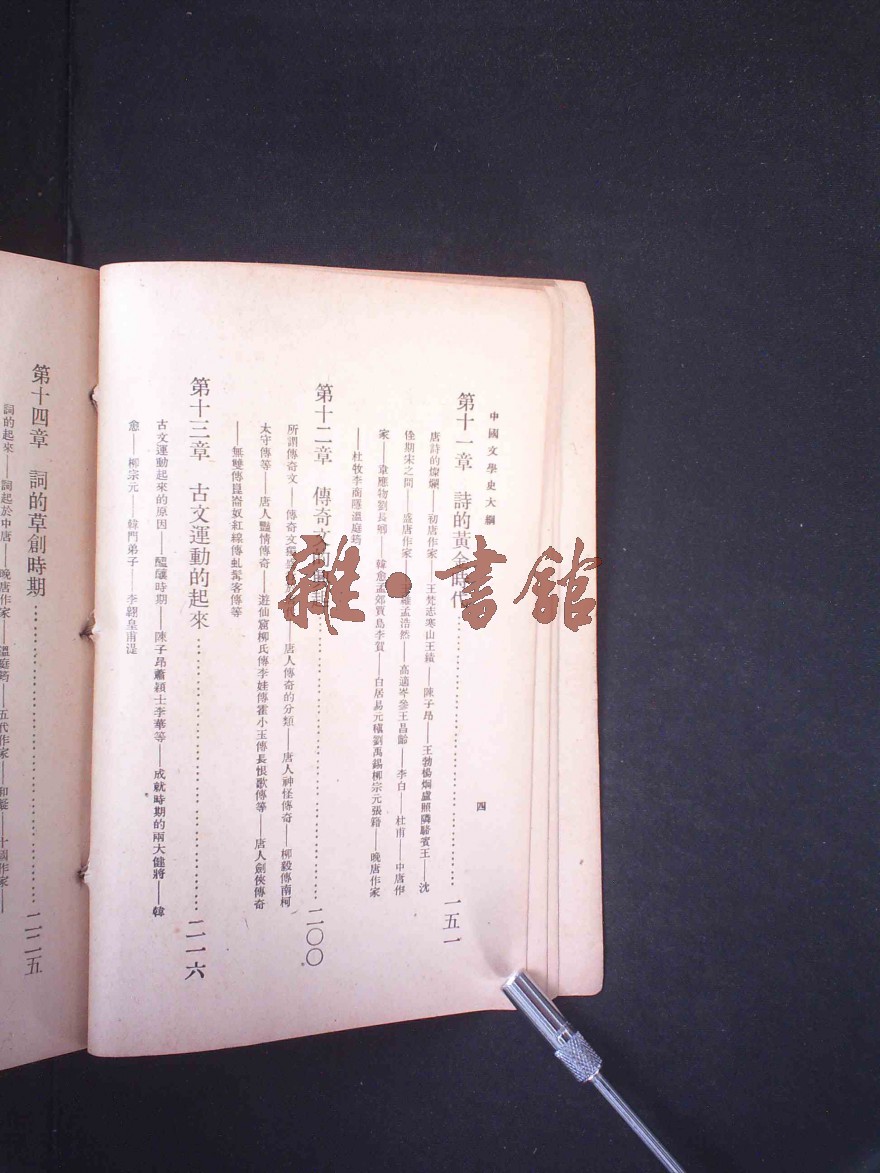 中國文學史大綱
四
第十一章 詩的黃金時代⋯⋯一五一
唐詩的燦爛——初唐作家——王梵志寒山王績——陳子昂——王勃楊烱盧照隣駱賓王——沈
佺期宋之問——盛唐作家 維孟浩然——高適岑參王昌齡——李白——杜甫——中唐作
家——韋應物劉長卿——韓愈孟郊賈島李賀——白居易元稹劉禹錫柳宗元張籍——晚唐作家
——杜牧李商隱溫庭筠
第十二章 傳奇文的 起⋯⋯二〇〇
所謂傳奇文——傳奇文 ——唐人傳奇的分類——唐人神怪傳奇——柳毅傳南柯
太守傳等——唐人豔情傳奇——遊仙窟柳氏傳李娃傳霍小玉傳長恨歌傳等——唐人劍俠傳奇
——無雙傳崑崙奴紅線傳虬髯客傳等
第十三章 古文運動的起來⋯⋯二一六
古文運動起來的原因——醞釀時期——陳子昂蕭穎士李華等——成就時期的兩大健將——韓
愈——柳宗元——韓門弟子——李翺皇甫湜
第十四章 詞的草創時期⋯⋯二二五
詞的起來——詞起於中唐——晚唐作家——溫庭筠——五代作家——和凝——十國作家——
雜·書館